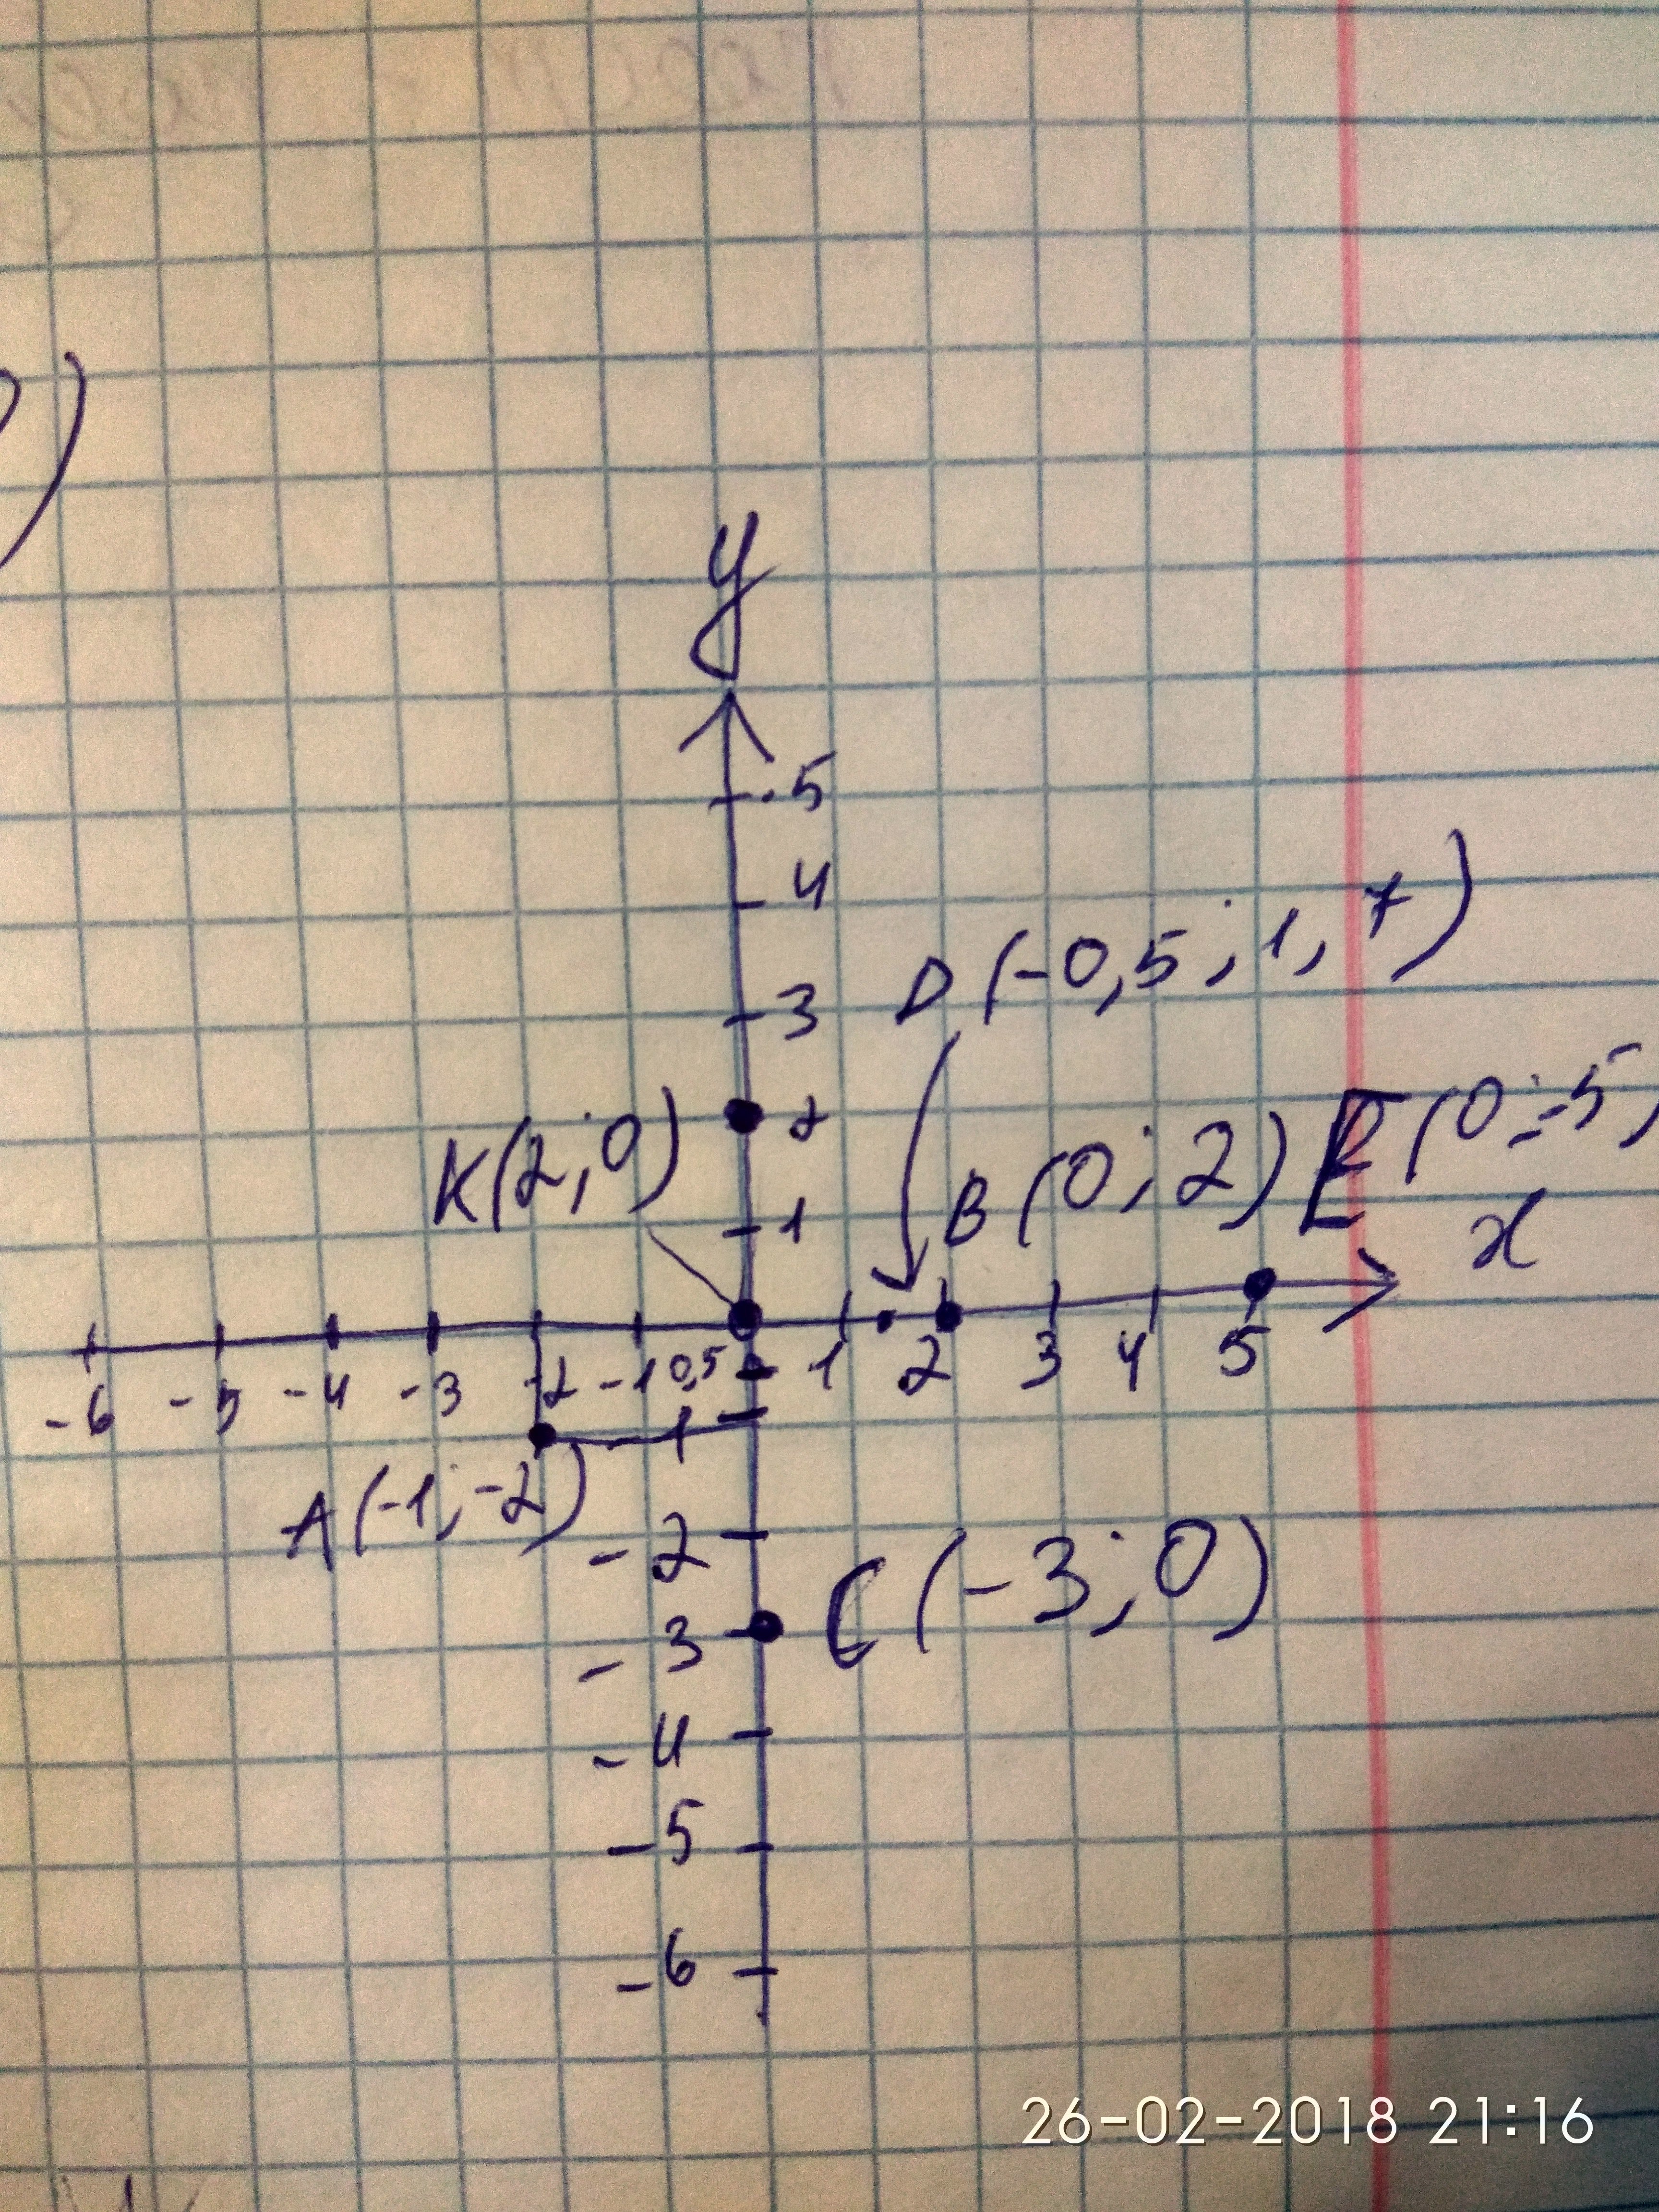 y
5
4
D(-0,5; 1,7)
3
E(0;-5)
K(2;0) 2
B(0;2)
1
x
-6 -5 -4 -3 -2 -1 0,5 1 2 3 4 5
-1
A(-1;-2)
-2
C(-3;0)
-3
-4
-5
-6
26-02-2018 21:16